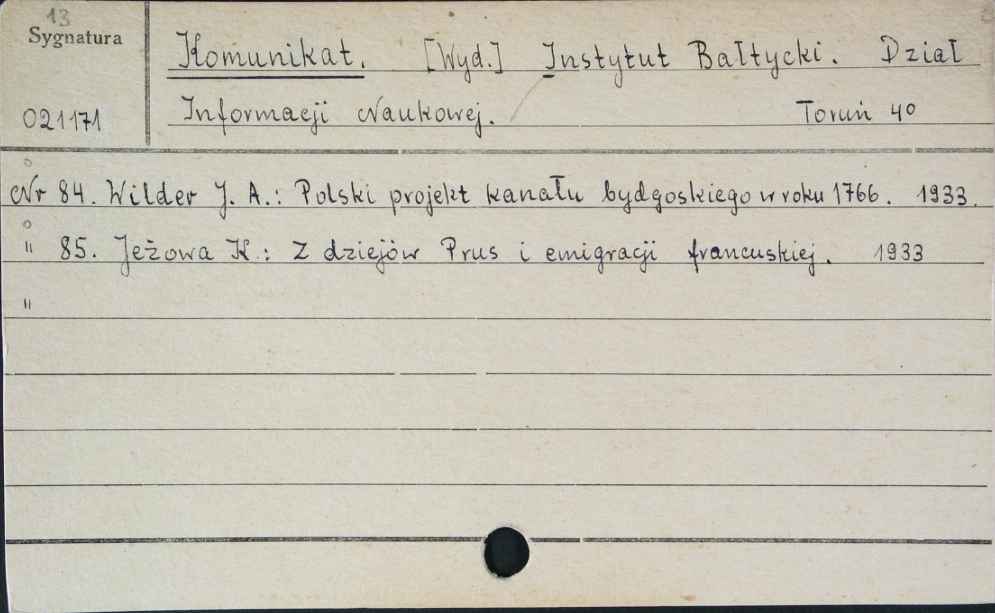 13
Sygnatura
Komunikat. [Wyd.] Instytut Bałtycki. Dział
021171
Informacji Naukowej. Toruń 4°
Nr 84. Wilder J. A.: Polski projekt kanału bydgoskiego w roku 1766. 1933.
" 85. Jeżowa K.: Z dziejów Prus i emigracji francuskiej. 1933
"